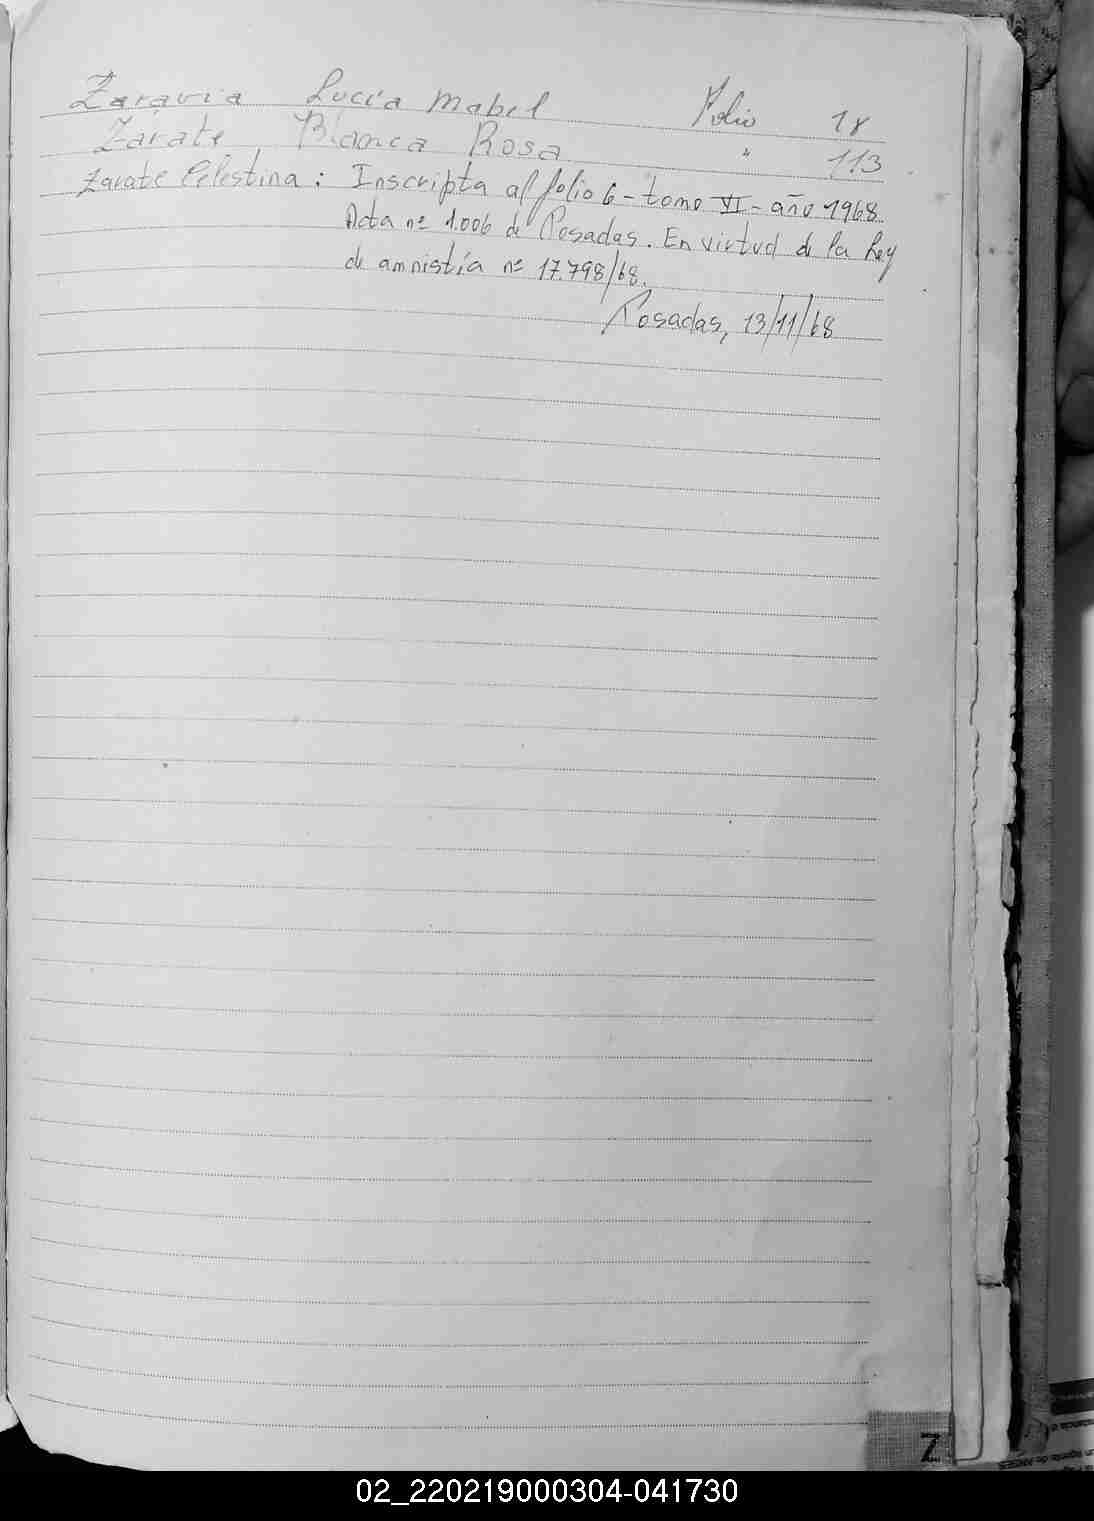 Zaravia Lucia Mabel Folio 18
Zárate Blanca Rosa " 113
Zarate Celestina: Inscripta al folio 6 - tomo VI - año 1968
Acta nº 1.006 de Posadas. En virtud de la Ley
de amnistía nº 17.798/68.
Posadas, 13/11/68
Z
02_220219000304-041730